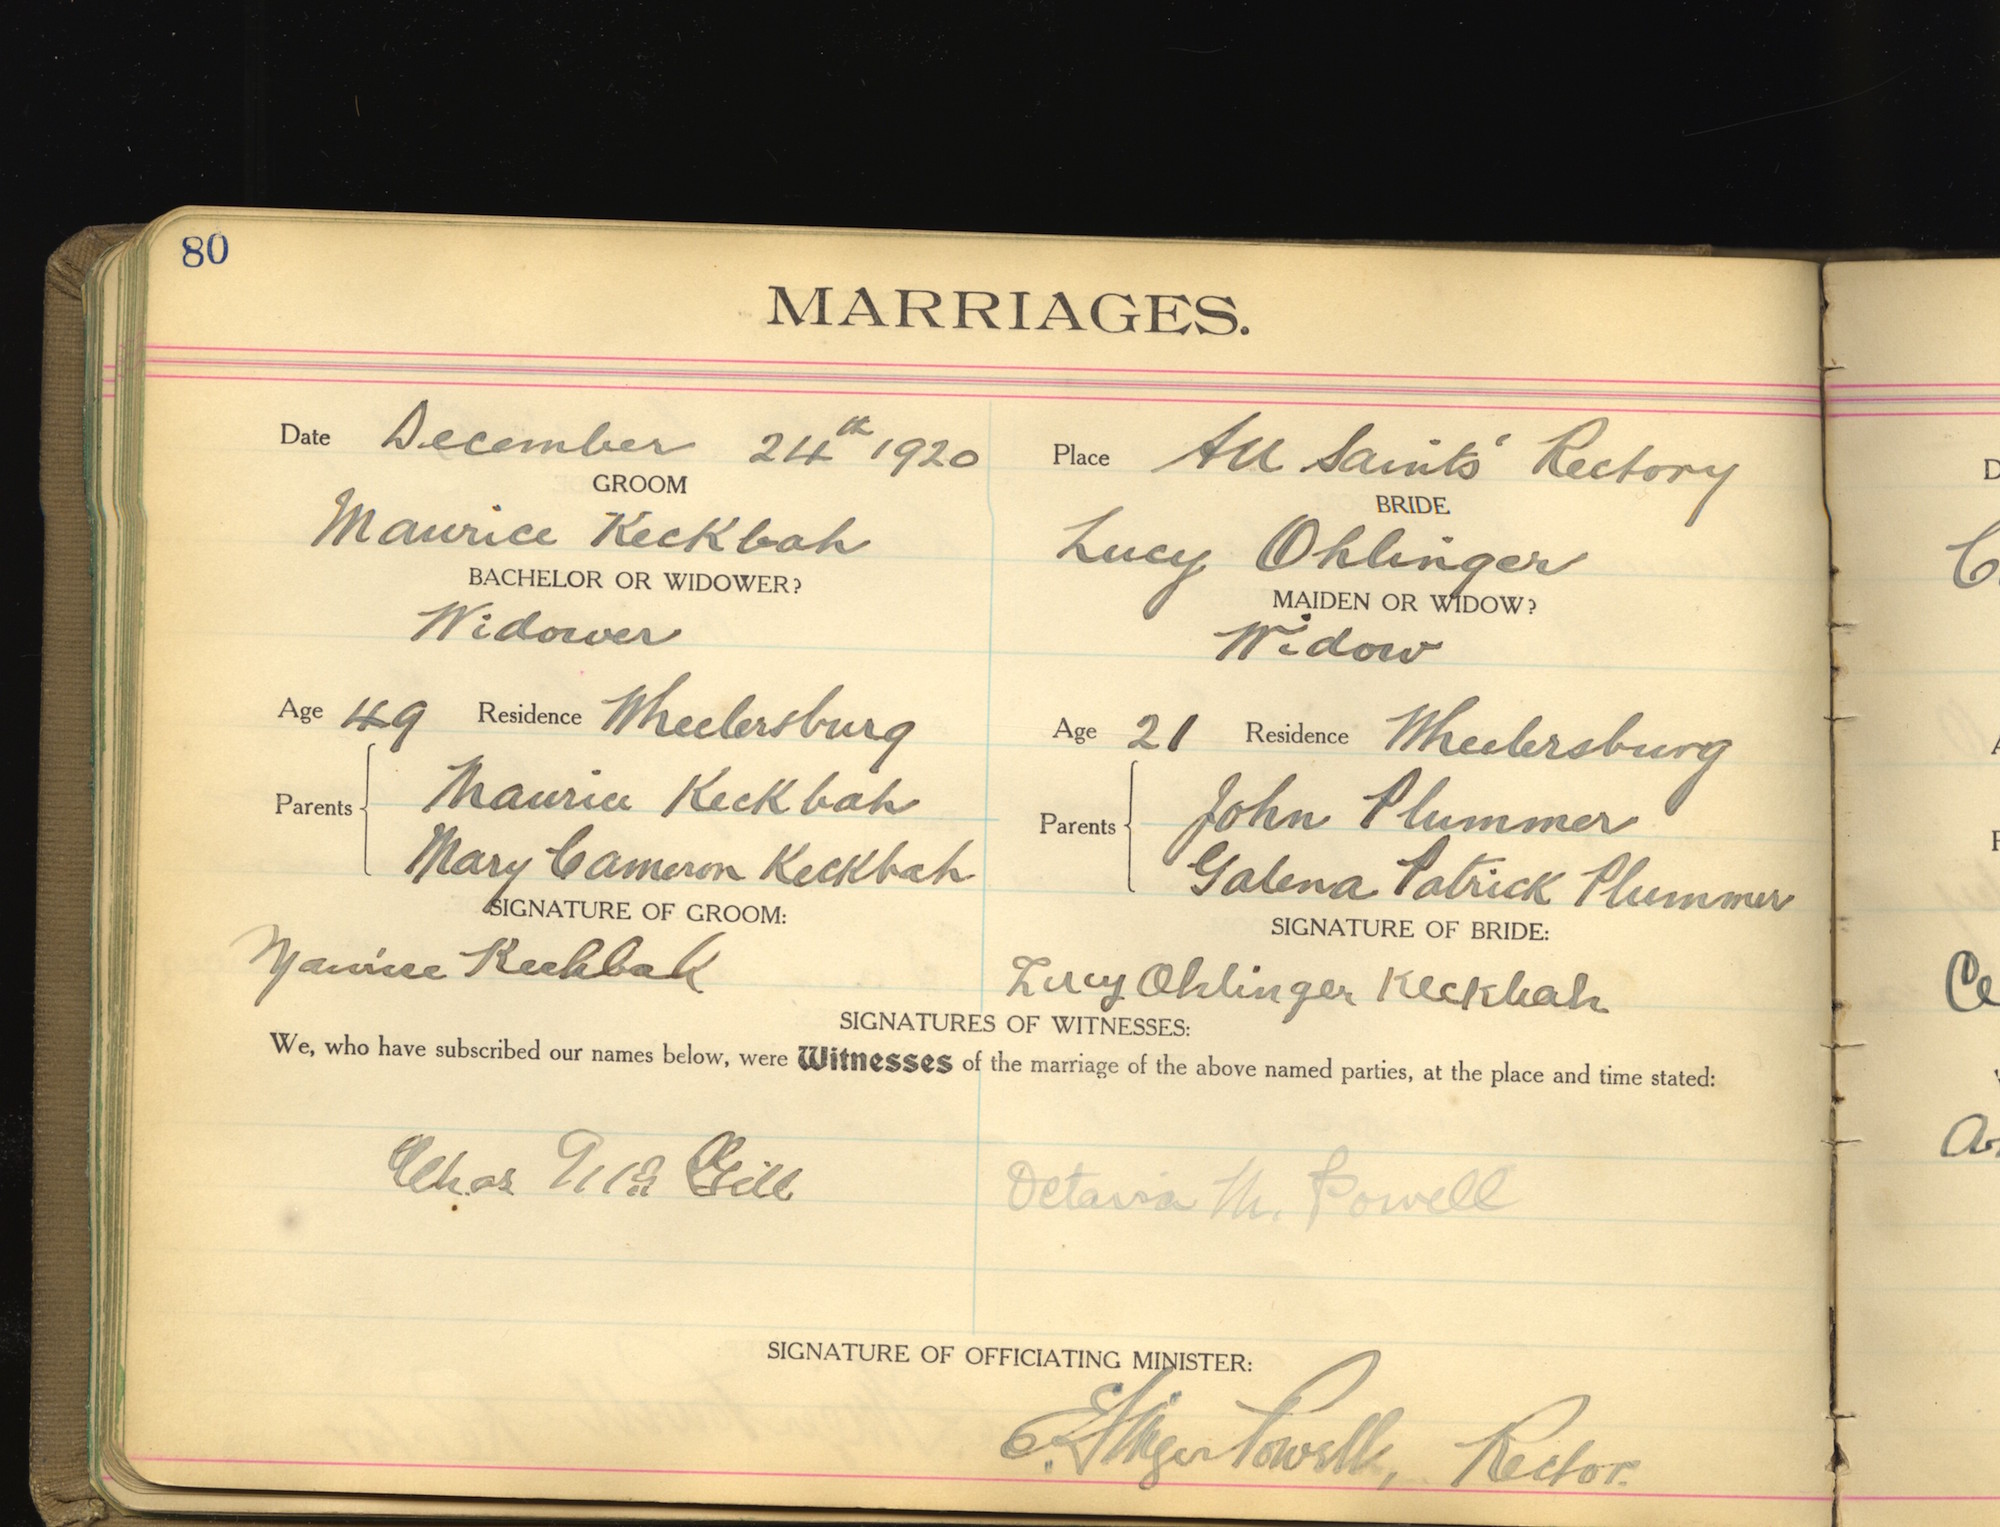 80
MARRIAGES.
Date December 24th 1920
Place All Saints' Rectory
GROOM
Maurice Keckbah
BACHELOR OR WIDOWER?
Widower
Age 49 Residence Wheelersburg
Parents Maurice Keckbah
Mary Cameron Keckbah
SIGNATURE OF GROOM:
Maurice Keckbah
BRIDE
Lucy Ohlinger
MAIDEN OR WIDOW?
Widow
Age 21 Residence Wheelersburg
Parents John Plummer
Galena Patrick Plummer
SIGNATURE OF BRIDE:
Lucy Ohlinger Keckbah
SIGNATURES OF WITNESSES:
We, who have subscribed our names below, were Witnesses of the marriage of the above named parties, at the place and time stated:
Chas Gill
Octavia M. Powell
SIGNATURE OF OFFICIATING MINISTER:
Powell, Rector.